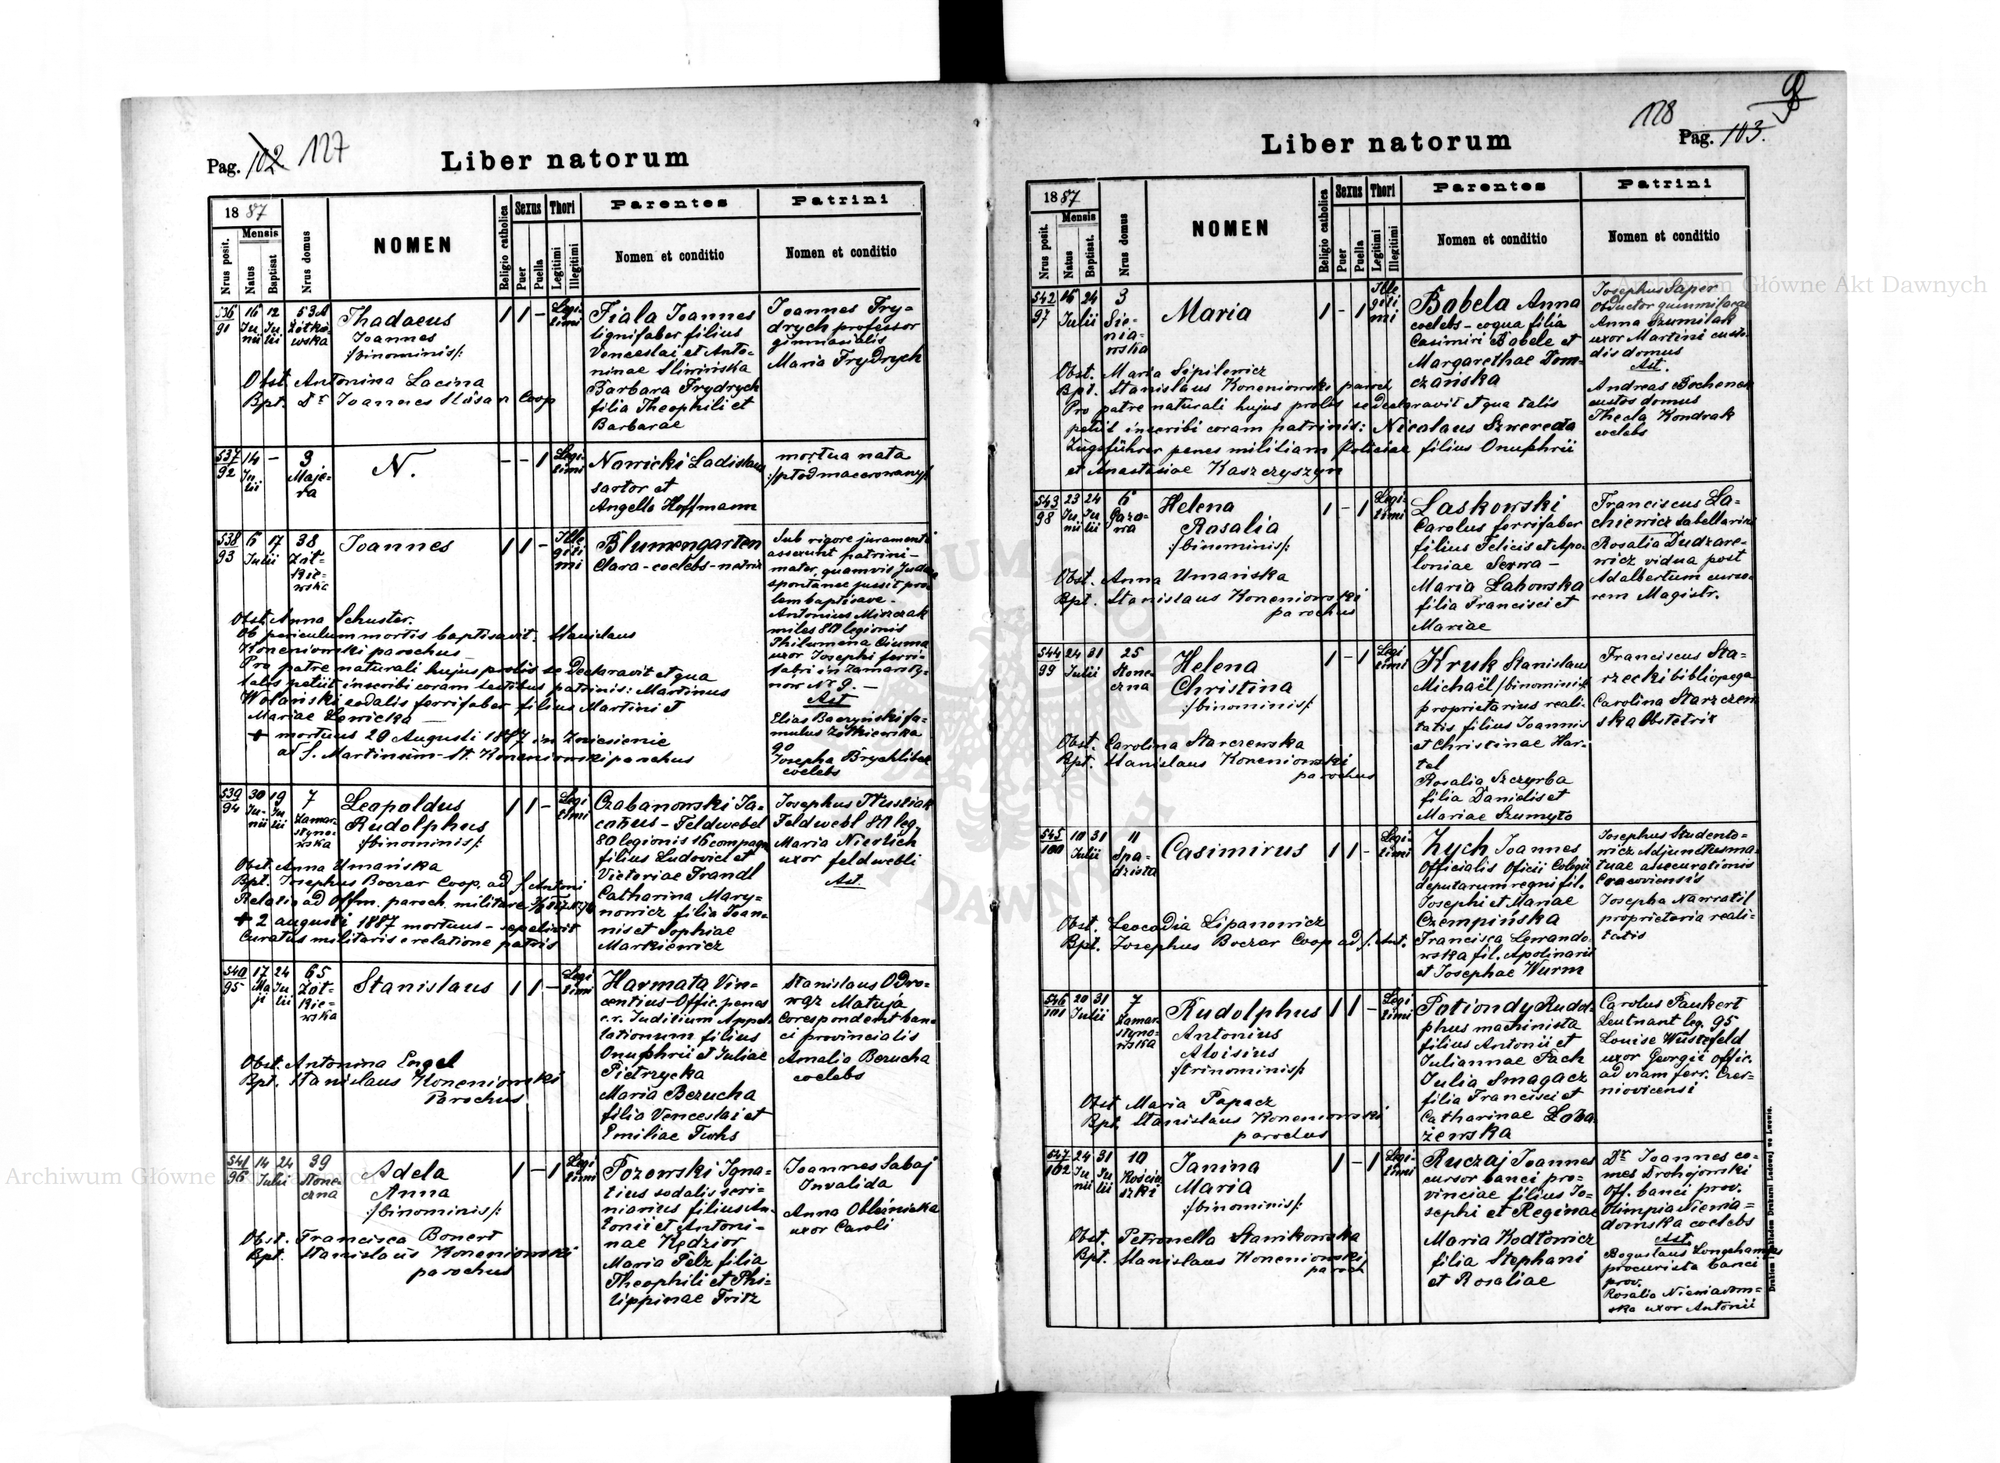 Pag. 102 127
Liber natorum
1887
Mensis
Nrus posit.
Natus
Baptisat
Nrus domus
NOMEN
Religio catholica
Sexus
Puer
Puella
Thori
Legitimi
Illegitimi
Parentes
Nomen et conditio
Patrini
Nomen et conditio
536
91
16
Junii
12
Julii
53A
Żółkiewska
Thadaeus
Joannes
/:binominis/:
1 1 – Legitimi
Obst. Antonina Lacina
Bpt. Dr Joannes Hösan Coop
Fiala Joannes
lignifaber filius
Venceslai et Anto-
ninae Śliwińska
Barbara Frydrych
filia Theophili et
Barbarae
Joannes Fry-
drych professor
gimnasialis
Maria Frydrych
537
92
14
Julii
–
3
Maje-
ra
N.
– – 1 Legitimi
Nowicki Ladislaus
sartor et
Angella Hoffmann
mortua nata
/:płód macerowany/:
538
93
6
Julii
17
38
Żół-
kie-
wska
Joannes
1 1 – Ille
giti
mi
Blumengarten
Clara - coelebs -
Obst. Anna Schuster.
Ob periculum mortis baptisavit. Stanislaus
Koneniowski parochus
Pro patre naturali hujus prolis se Declaravit et qua
talis petiit inscribi coram testibus patrinis: Martinus
Wolański sodalis ferrifaber filius Martini et
Mariae Lewicka —
+ mortuus 29 Augusti 1887 in Zniesienie
ad S. Martinum - St. Koneniowski parochus
Sub rigore juramenti
asserunt patrini -
mater, quamvis Judaea
spontanee jussit pro-
lem baptisare -
Antonius Misiczak
miles 80 legionis
Philumena Ciuma
uxor Josephi ferri-
fabri in Zamarsty-
now No 9. -
Ast
Elias Baczyński fa-
mulus Żółkiewska
90
Josepha Brychlibek
coelebs
539
94
30
Junii
19
Julii
7
Zamar-
styno-
wska
Leopoldus
Rudolphus
/:binominis/:
1 1 – Legitimi
Obst. Anna Umańska
Bpt. Josephus Boczar Coop. ad S. Antoni
Relatio ad Offm. paroch. militare
+ 2 augusti 1887 mortuus - sepelivit
Curatus militaris e relatione patris
Czabanowski Ja-
cobus - Feldwebel
80 legionis 16 compag
filius Ludovici et
Victoriae Frandl
Catharina Mary-
nowicz filia Joan-
nis et Sophiae
Markiewicz
Josephus
Feldwebl 80 leg.
Maria Nierlich
uxor feldwebli
Ast.
540
95
17
Maji
24
Julii
65
Żół-
kie-
wska
Stanislaus
1 1 – Legitimi
Obst. Antonina Engel
Bpt. Stanislaus Koneniowski
Parochus
Harmata Vin-
centius - Offic. penes
c.r. Judilium Appel
lationum filius
Onuphrii et Juliae
Pietrzycka
Maria Bezucha
filia Venceslai et
Emiliae Fuchs
Stanislaus Odro-
wąż Matuja
Corespondent ban-
ci provincialis
Amalia Bezucha
coelebs
541
96
14
Julii
24
39
Słone-
czna
Adela
Anna
/:binominis/:
1 – 1 Legitimi
Obst. Francisca Bonert
Bpt. Stanislaus Koneniowski
parochus
Pozowski Igna-
tius sodalis seri-
niarius filius An-
tonii et Antoni-
nae Kędzior
Maria Pelz filia
Theophili et Phi-
lippinae Fritz
Joannes Sabaj
Invalida
Anna Obleśniska
uxor Caroli
128
Pag. 103.
Liber natorum
1887
Mensis
Nrus posit.
Natus
Baptisat.
Nrus domus
NOMEN
Religio catholica
Sexus
Puer
Puella
Thori
Legitimi
Illegitimi
Parentes
Nomen et conditio
Patrini
Nomen et conditio
542
97
16
Julii
24
3
Sie-
nia-
wska
Maria
1 – 1 Ille
giti
mi
Obst. Maria Sipilewicz
Bpt. Stanislaus Koneniowski paroch
Pro patre naturali hujus prolis se declaravit et qua talis
petiit inscribi coram patrinis: Nicolaus Szwereda
Zugsführer penes militiam Policiae filius Onuphrii
et Anastasiae Kaszczyszyn
Babela Anna
coelebs - coqua filia
Casimiri Babele et
Margarethae Dom-
czańska
Josephus Sapir
Obductor gummilacae
Anna Szumilak
uxor Martini custo-
dis domus
Ast.
Andreas Bochenek
custos domus
Thecla Kondrak
coelebs
543
98
23
Junii
24
Julii
6
Gazo-
wa
Helena
Rosalia
/:binominis/:
1 – 1 Legitimi
Obst. Anna Umańska
Bpt. Stanislaus Koneniowski
parochus
Laskowski
Carolus ferrifaber
filius Felicis et Apo-
loniae Serwa -
Maria Lahowska
filia Francisci et
Mariae
Franciscus La-
chiewicz tabellarius
Rosalia Dudzare-
wicz vidua post
Adalbertum curso-
rem Magistr.
544
99
24
Julii
31
25
Słone-
czna
Helena
Christina
/:binominis/:
1 – 1 Legitimi
Obst. Carolina Starczewska
Bpt. Stanislaus Koneniowski
parochus
Kruk Stanislaus
Michaël /:binominis/:
proprietarius reali-
tatis filius Joannis
et Christinae Har-
tel
Rosalia Szczyrba
filia Danielis et
Mariae Szumyło
Franciscus Sta-
rzecki bibliopega
Carolina Starczew
ska Obstetrix
545
100
10
Julii
31
11
Spa-
dzista
Casimirus
1 1 – Legitimi
Obst. Leocadia Lipanowicz
Bpt. Josephus Boczar Coop ad S. Ant.
Zych Joannes
Officialis Oficii Colegii
deputarum regni fil.
Josephi et Mariae
Czempińska
Francisca Lewando-
wska fil. Apolinarii
et Josephae Wurm
Josephus Studento-
wicz Adjunctus mu-
tuae assecurationis
Cracoviensis
Josepha Nawratil
proprietaria reali-
tatis
546
101
20
Julii
31
7
Zamar-
styno-
wska
Rudolphus
Antonius
Aloisius
/:trinominis/:
1 1 – Legitimi
Obst Maria Papacz
Bpt. Stanislaus Koneniowski
parochus
Potiondy Rudol-
phus machinista
filius Antonii et
Juliannae Pach
Julia Smagacz
filia Francisci et
Catharinae Łoba-
żewska
Carolus Paukert
Leutnant leg. 95
Louise Wüstefeld
uxor Georgii offic.
ad viam ferr. Czer-
niovicensi
547
102
24
Junii
31
Julii
10
Kościu-
szki
Janina
Maria
/:binominis/:
1 – 1 Legitimi
Obst. Petronella Stanikowska
Bpt. Stanislaus Koneniowski
paroch
Ruczaj Joannes
cursor banci pro-
vinciae filius Jo-
sephi et Reginae
Maria Kodłowicz
filia Stephani
et Rosaliae
Dr. Joannes co-
mes Drohojowski
Off. banci prov.
Olimpia Niewia-
domska coelebs
Ast.
Boguslaus Longchamps
procurista banci
prov.
Rosalia Niewiadom-
ska uxor Antonii
Drukiem i nakładem Drukarni Ludowej we Lwowie.
Archiwum Główne Akt Dawnych
Archiwum Główne Akt Dawnych